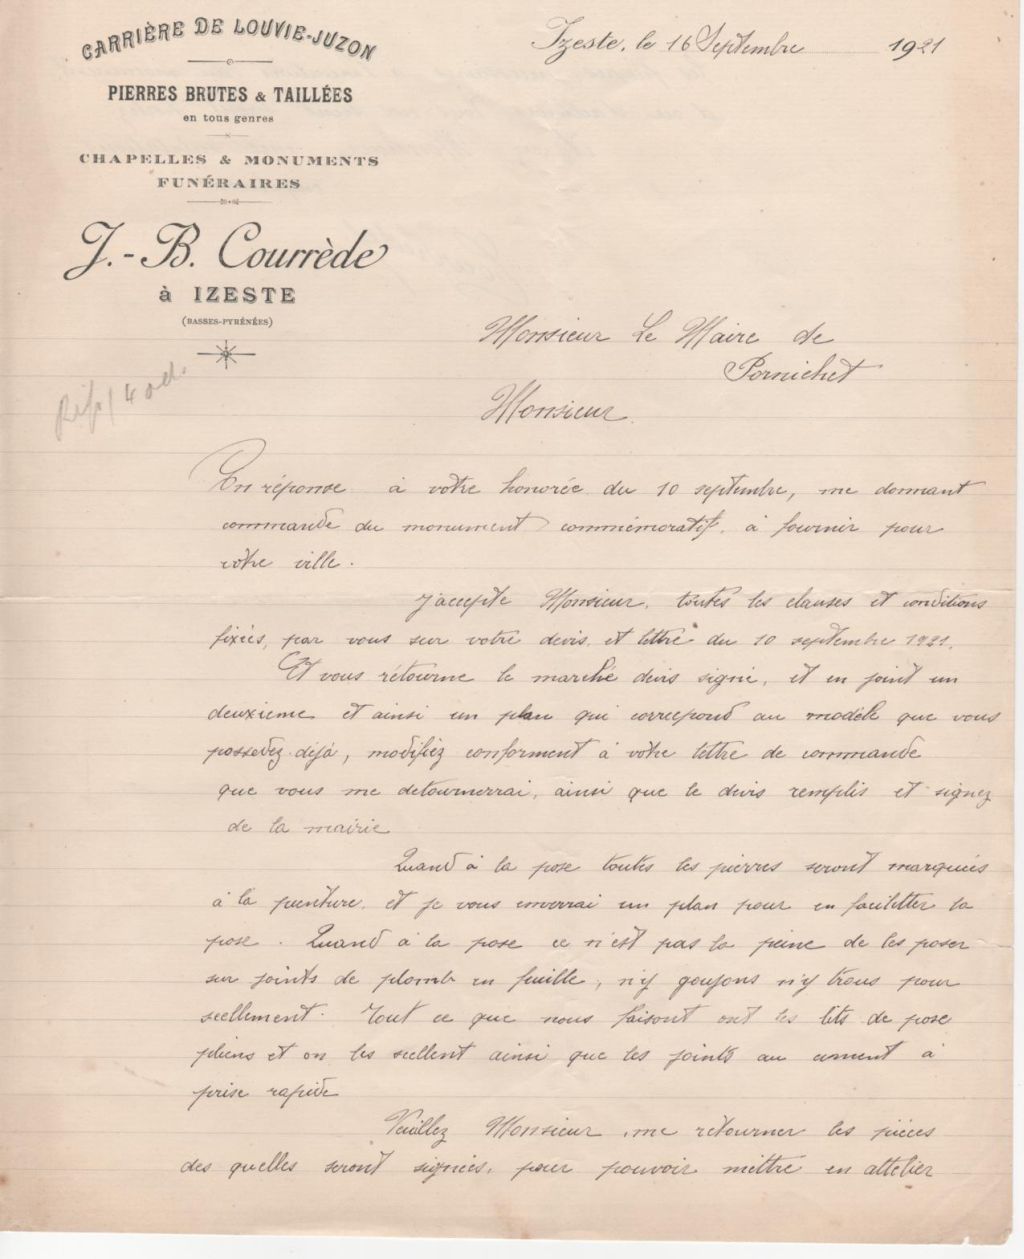 CARRIÈRE DE LOUVIE-JUZON
PIERRES BRUTES & TAILLÉES
en tous genres
CHAPELLES & MONUMENTS
FUNÉRAIRES
J.-B. Courrède
à IZESTE
(BASSES-PYRÉNÉES)
Izeste, le 16 Septembre 1921
Monsieur Le Maire de
Pornichet
Monsieur
En réponse à votre honorée du 10 septembre, me donnant
commande du monument commémoratif, à fournir pour
votre ville.
J'accepte Monsieur, toutes les clauses et conditions
fixées, par vous sur votre devis et lettre du 10 septembre 1921.
Et vous rétourne le marché devis signé, et en joint un
deuxième et ainsi un plan qui correspond au modèle que vous
possedez déjà, modifiez conforment à votre lettre de commande
que vous me detournerrai, ainsi que le devis remplis et signez
de la mairie
Quand à la pose toutes les pierres seront marquées
à la peinture, et je vous enverrai un plan pour en faciletter la
pose. Quand à la pose ce n'est pas la peine de les poser
sur joints de plomb en feuille, n'y goujons n'y trous pour
scellement. Tout ce que nous faisont ont les lits de pose
pleins et on les scellent ainsi que les joints au ciment à
prise rapide
Veuillez Monsieur, me rétourner les pièces
des quelles seront signées, pour pouvoir mettre en attelier